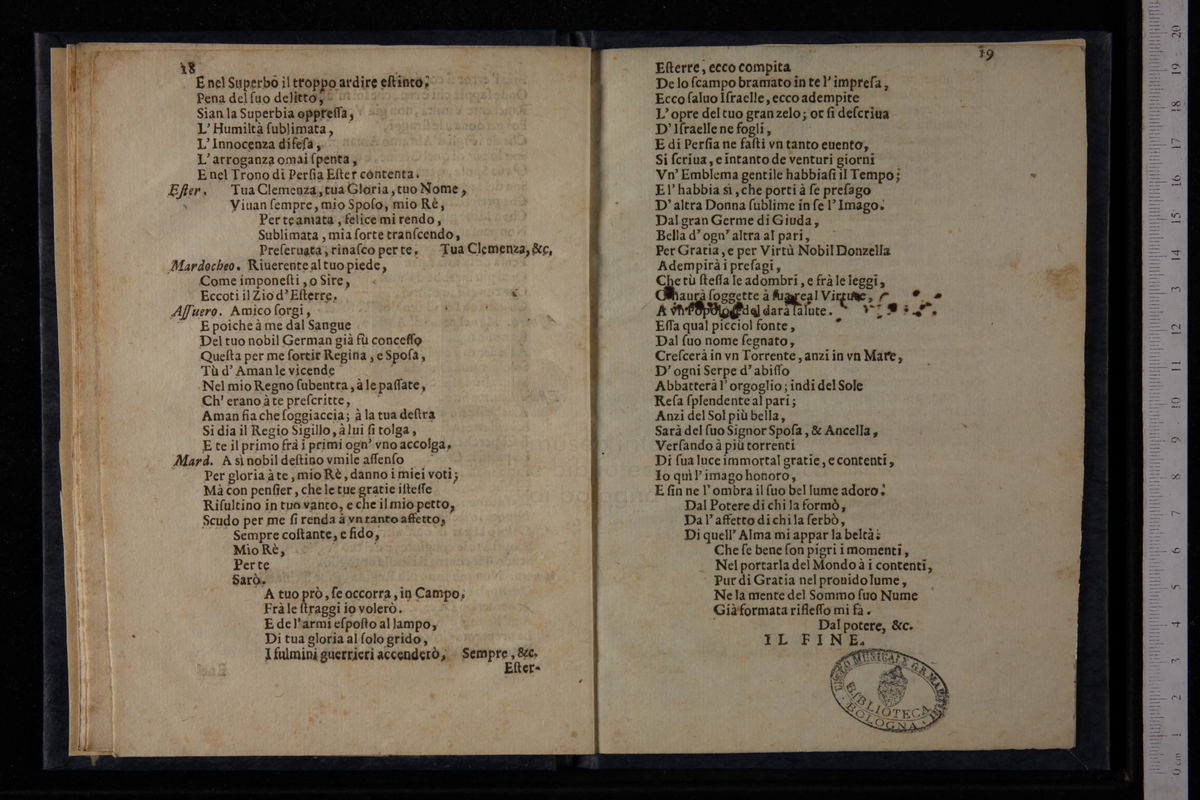 18
E nel Superbo il troppo ardire eſtinto.
Pena del ſuo delitto,
Sian la Superbia oppreſſa,
L'Humiltà ſublimata,
L'Innocenza difeſa,
L'arroganza omai ſpenta,
E nel Trono di Perſia Eſter contenta.
Eſter. Tua Clemenza, tua Gloria, tuo Nome,
Viuan ſempre, mio Spoſo, mio Rè,
Per te amata, felice mi rendo,
Sublimata, mia ſorte tranſcendo,
Preſeruata, rinaſco per te. Tua Clemenza, &c.
Mardocheo. Riuerente al tuo piede,
Come imponeſti, o Sire,
Eccoti il Zio d'Eſterre.
Aſſuero. Amico ſorgi,
E poiche à me dal Sangue
Del tuo nobil German già fù conceſſo
Queſta per me ſortir Regina, e Spoſa,
Tù d'Aman le vicende
Nel mio Regno ſubentra, à le paſſate,
Ch'erano à te preſcritte,
Aman fia che ſoggiaccia; à la tua deſtra
Si dia il Regio Sigillo, à lui ſi tolga,
E te il primo frá i primi ogn'vno accolga.
Mard. A sì nobil deſtino vmile aſſenſo
Per gloria à te, mio Rè, danno i miei voti;
Mà con penſier, che le tue gratie iſteſſe
Riſultino in tuo vanto, e che il mio petto,
Scudo per me ſi renda à vn tanto affetto,
Sempre coſtante, e fido,
Mio Rè,
Per te
Sarò.
A tuo prò, ſe occorra, in Campo,
Frà le ſtraggi io volerò.
E de l'armi eſpoſto al lampo,
Di tua gloria al ſolo grido,
I fulmini guerrieri accenderò, Sempre, &c.
Eſter-
19
Eſterre, ecco compita
De lo ſcampo bramato in te l'impreſa,
Ecco ſaluo Iſraelle, ecco adempite
L'opre del tuo gran zelo; or ſi deſcriua
D'Iſraelle ne fogli,
E di Perſia ne faſti vn tanto euento,
Si ſcriua, e intanto de venturi giorni
Vn'Emblema gentile habbiaſi il Tempo;
E l'habbia sì, che porti à ſe preſago
D'altra Donna ſublime in ſe l'Imago.
Dal gran Germe di Giuda,
Bella d'ogn'altra al pari,
Per Gratia, e per Virtù Nobil Donzella
Adempirà i preſagi,
Che tù ſteſſa le adombri, e frà le leggi,
C'haurà ſoggette à ſua real Virtute,
A vn Popolo fedel darà ſalute.
Eſſa qual picciol fonte,
Dal ſuo nome ſegnato,
Creſcerà in vn Torrente, anzi in vn Mare,
D'ogni Serpe d'abiſſo
Abbatterà l'orgoglio; indi del Sole
Reſa ſplendente al pari;
Anzi del Sol più bella,
Sarà del ſuo Signor Spoſa, & Ancella,
Verſando à più torrenti
Di ſua luce immortal gratie, e contenti,
Io quì l'imago honoro,
E fin ne l'ombra il ſuo bel lume adoro.
Dal Potere di chi la formò,
Da l'affetto di chi la ſerbò,
Di quell'Alma mi appar la beltà:
Che ſe bene ſon pigri i momenti,
Nel portarla del Mondo à i contenti,
Pur di Gratia nel prouido lume,
Ne la mente del Sommo ſuo Nume
Già formata rifleſſo mi fà.
Dal potere, &c.
IL FINE.
LICEO MUSICALE G.B. MARTINI
BIBLIOTECA
BOLOGNA